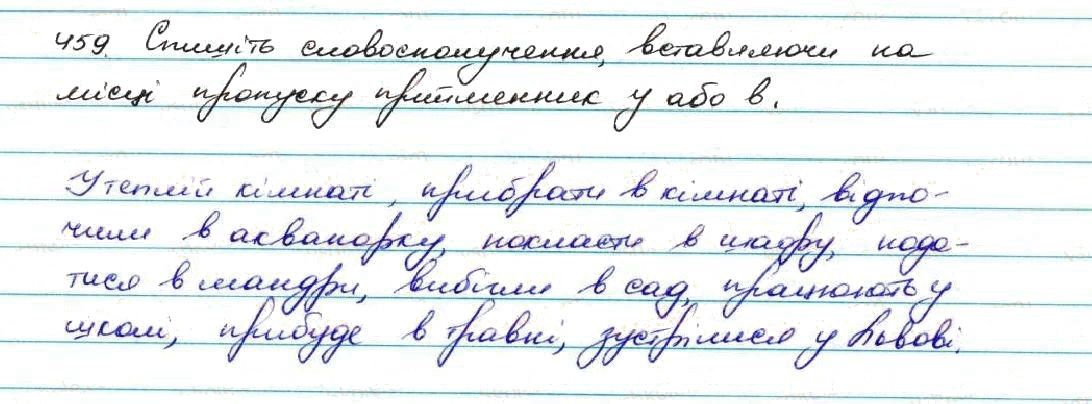 459. Спишіть словосполучення, вставляючи на
місці пропуску прийменник у або в.
У теплій кімнаті, прибрати в кімнаті, відпо-
чили в аквапарку, покласти в шафу, пода-
тися в мандри, вибігли в сад, працюють у
школі, прибуде в травні, зустрілися у Львові.